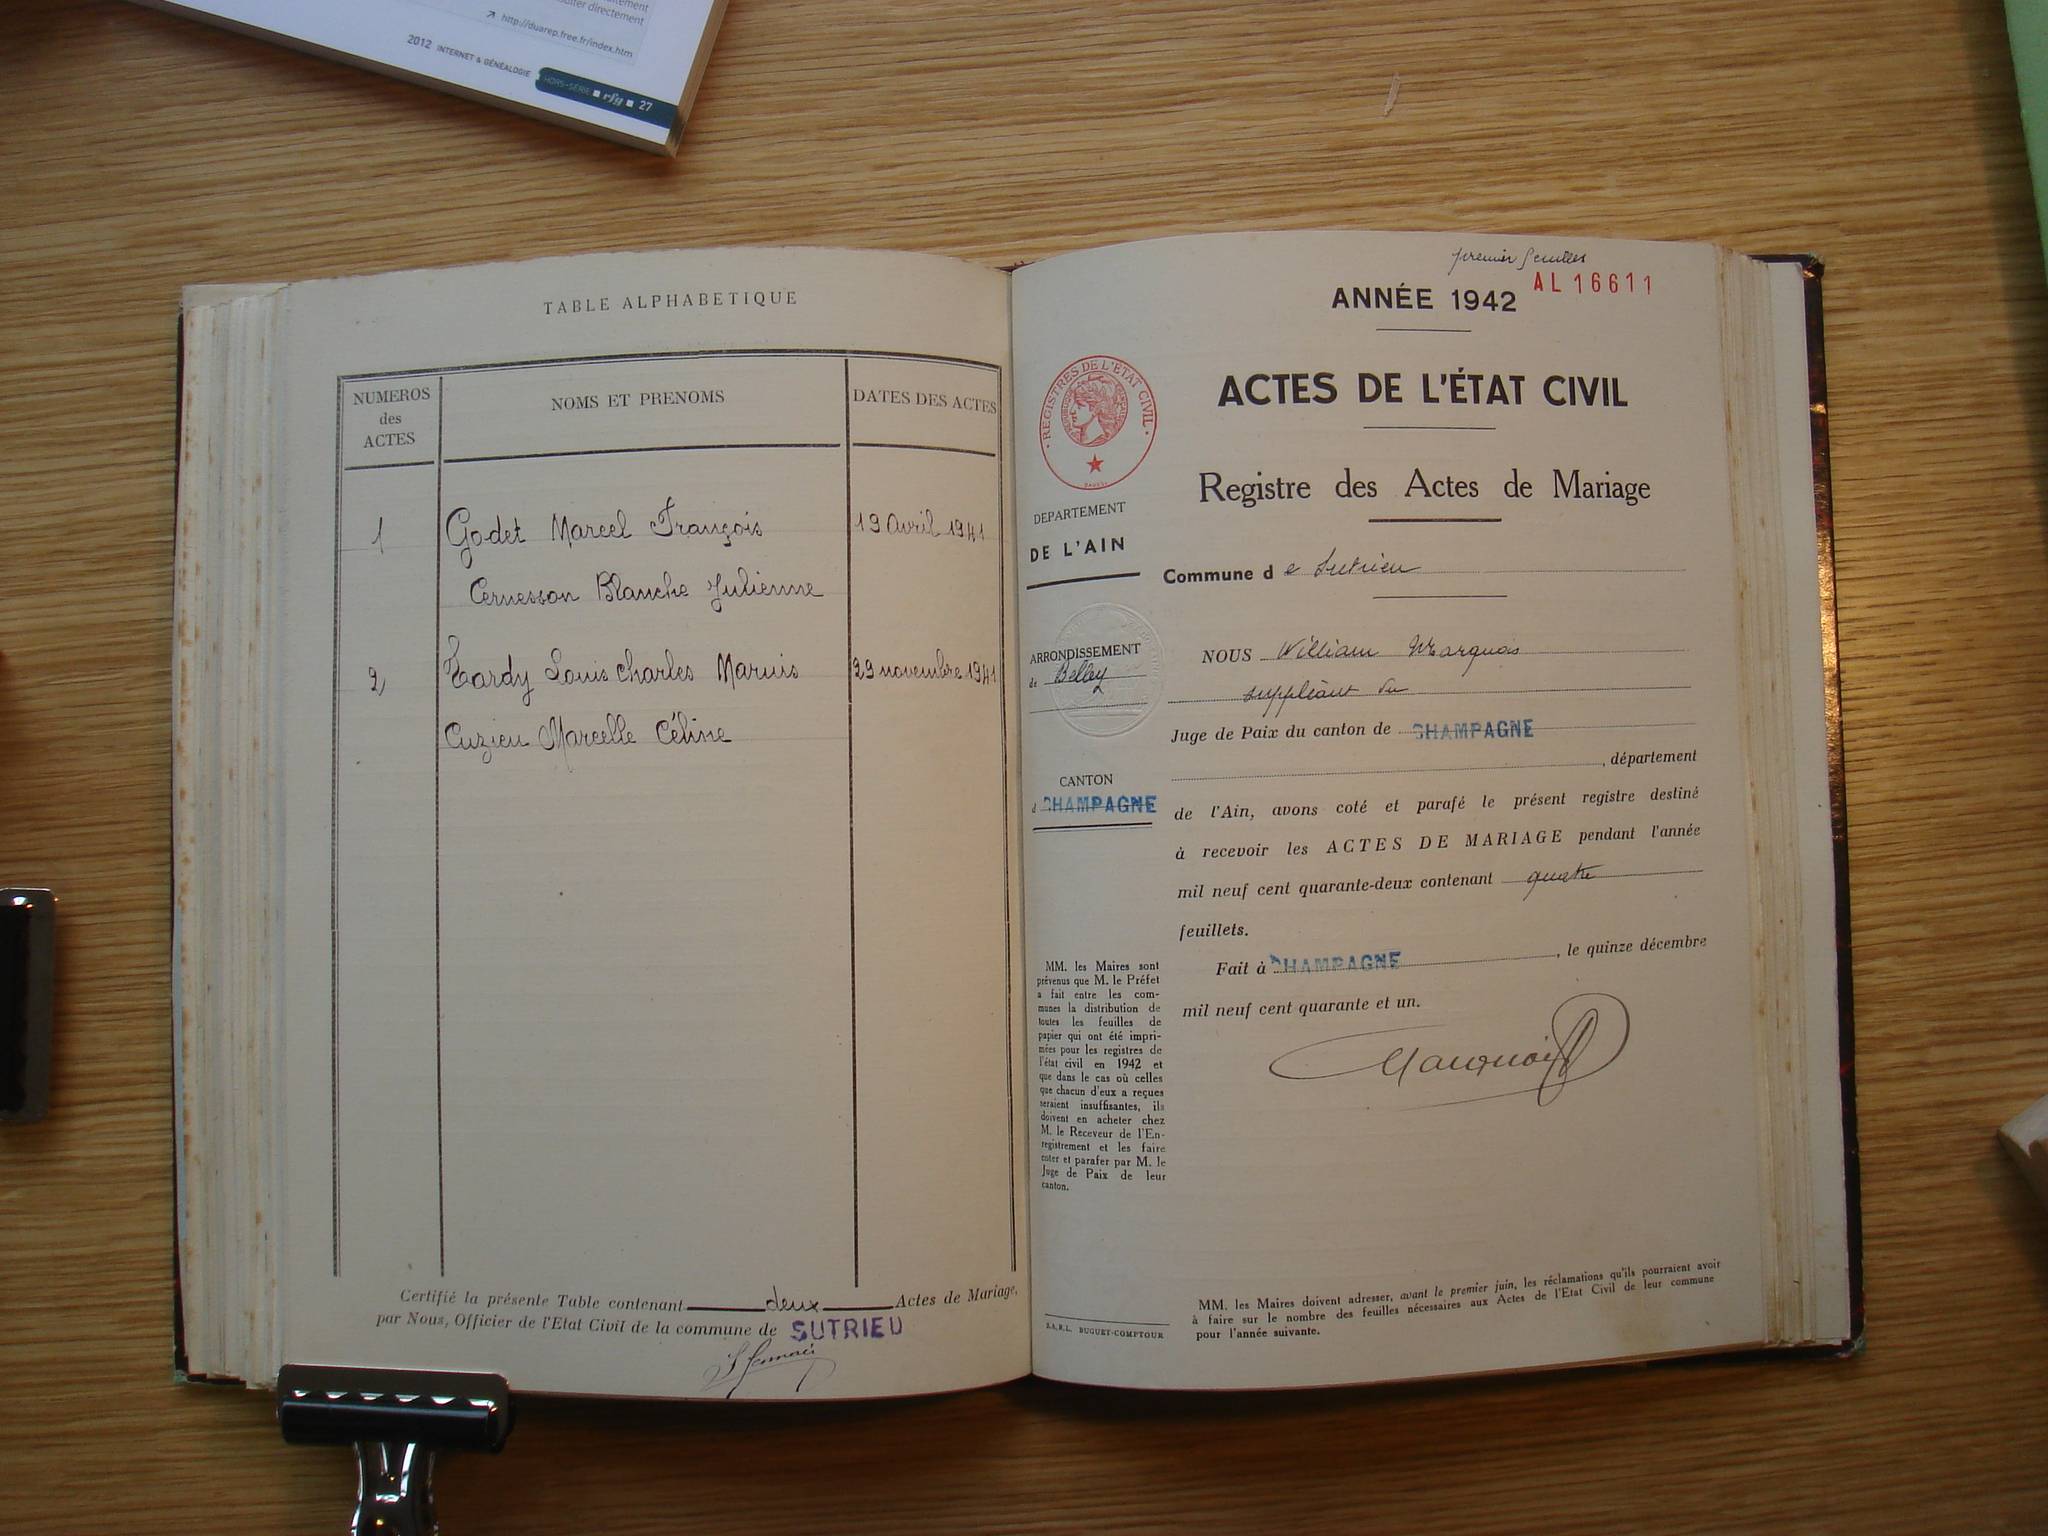 ulter directement
http://duarep.free.fr/index.htm
2012 INTERNET & GÉNÉALOGIE HORS-SÉRIE rfg 27
TABLE ALPHABETIQUE
NUMEROS
des
ACTES
NOMS ET PRENOMS
DATES DES ACTES
1 Godet Marcel François 19 avril 1941
Cernesson Blanche Julienne
2 Tardy Louis Charles Marius 29 novembre 1941
Cuzieu Marcelle Céline
Certifié la présente Table contenant deux Actes de Mariage,
par Nous, Officier de l'Etat Civil de la commune de SUTRIEU
premier feuillet
ANNÉE 1942
AL 16611
REGISTRES DE L'ÉTAT CIVIL
ACTES DE L'ÉTAT CIVIL
Registre des Actes de Mariage
DEPARTEMENT
DE L'AIN
Commune de Sutrieu
ARRONDISSEMENT
de Belley
NOUS William Marquois
suppléant du
Juge de Paix du canton de CHAMPAGNE
, département
CANTON
d CHAMPAGNE
de l'Ain, avons coté et parafé le présent registre destiné
à recevoir les ACTES DE MARIAGE pendant l'année
mil neuf cent quarante-deux contenant quatre
feuillets.
Fait à CHAMPAGNE, le quinze décembre
mil neuf cent quarante et un.
MM. les Maires sont
prévenus que M. le Préfet
a fait entre les com-
munes la distribution de
toutes les feuilles de
papier qui ont été impri-
mées pour les registres de
l'état civil en 1942 et
que dans le cas où celles
que chacun d'eux a reçues
seraient insuffisantes, ils
doivent en acheter chez
M. le Receveur de l'En-
registrement et les faire
coter et parafer par M. le
Juge de Paix de leur
canton.
S.A.R.L. BUGUET-COMPTOUR
MM. les Maires doivent adresser, avant le premier juin, les réclamations qu'ils pourraient avoir
à faire sur le nombre des feuilles nécessaires aux Actes de l'Etat Civil de leur commune
pour l'année suivante.